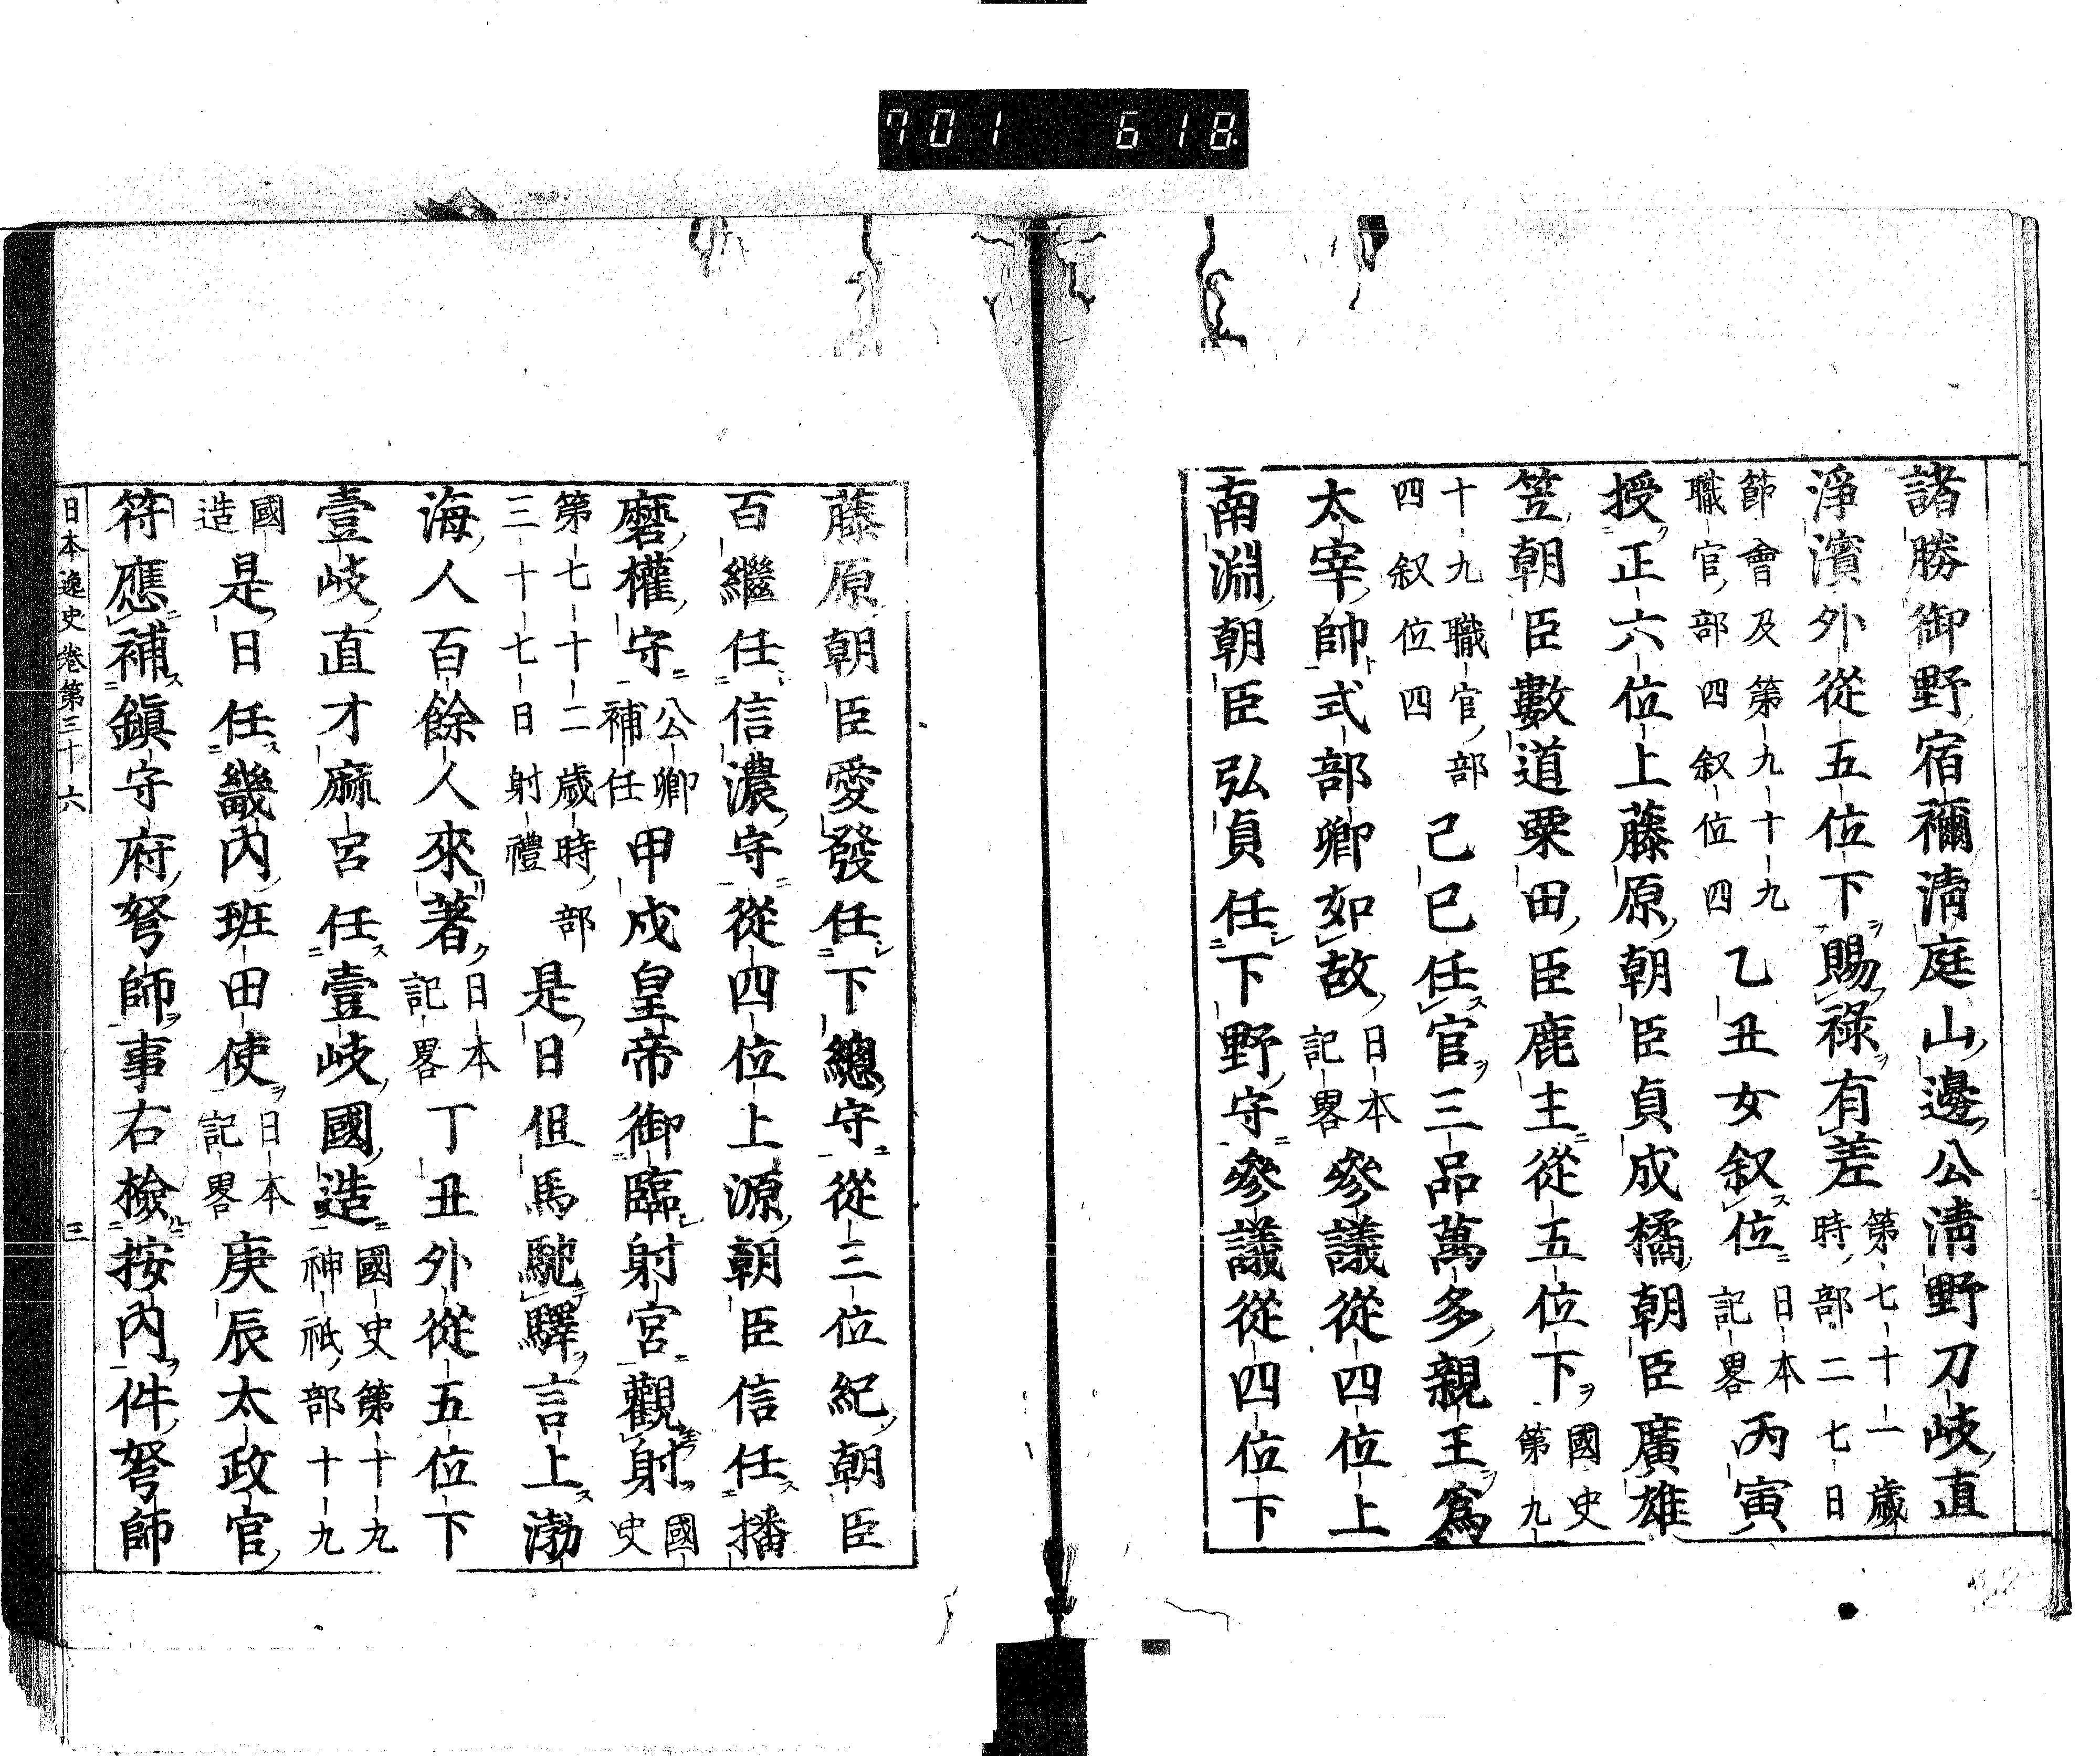 701 618
諸勝御野宿禰淸庭山邊公淸野刀岐直
淨濱外從五位下賜祿有差第七十一歲時部二七日
節會及第九十九職官部四叙位四乙丑女叙位日本記畧丙寅
授正六位上藤原朝臣貞成橘朝臣廣雄
笠朝臣數道粟田臣鹿主從五位下國史第九
十九職官部四叙位四己巳任官三品萬多親王爲
太宰帥式部卿如故日本記畧參議從四位上
南淵朝臣弘貞任下野守參議從四位下
藤原朝臣愛發任下總守從三位紀朝臣
百繼任信濃守從四位上源朝臣信任播
磨權守公卿補任甲戌皇帝御臨射宮觀射國史
第七十二歲時部三十七日射禮是日但馬馳驛言上渤
海人百餘人來著日本記畧丁丑外從五位下
壹岐直才麻呂任壹岐國造國史第十九神祇部十九
國造是日任畿內班田使日本記畧庚辰太政官
符應補鎭守府弩師事右檢按內件弩師
日本逸史卷第三十六 三